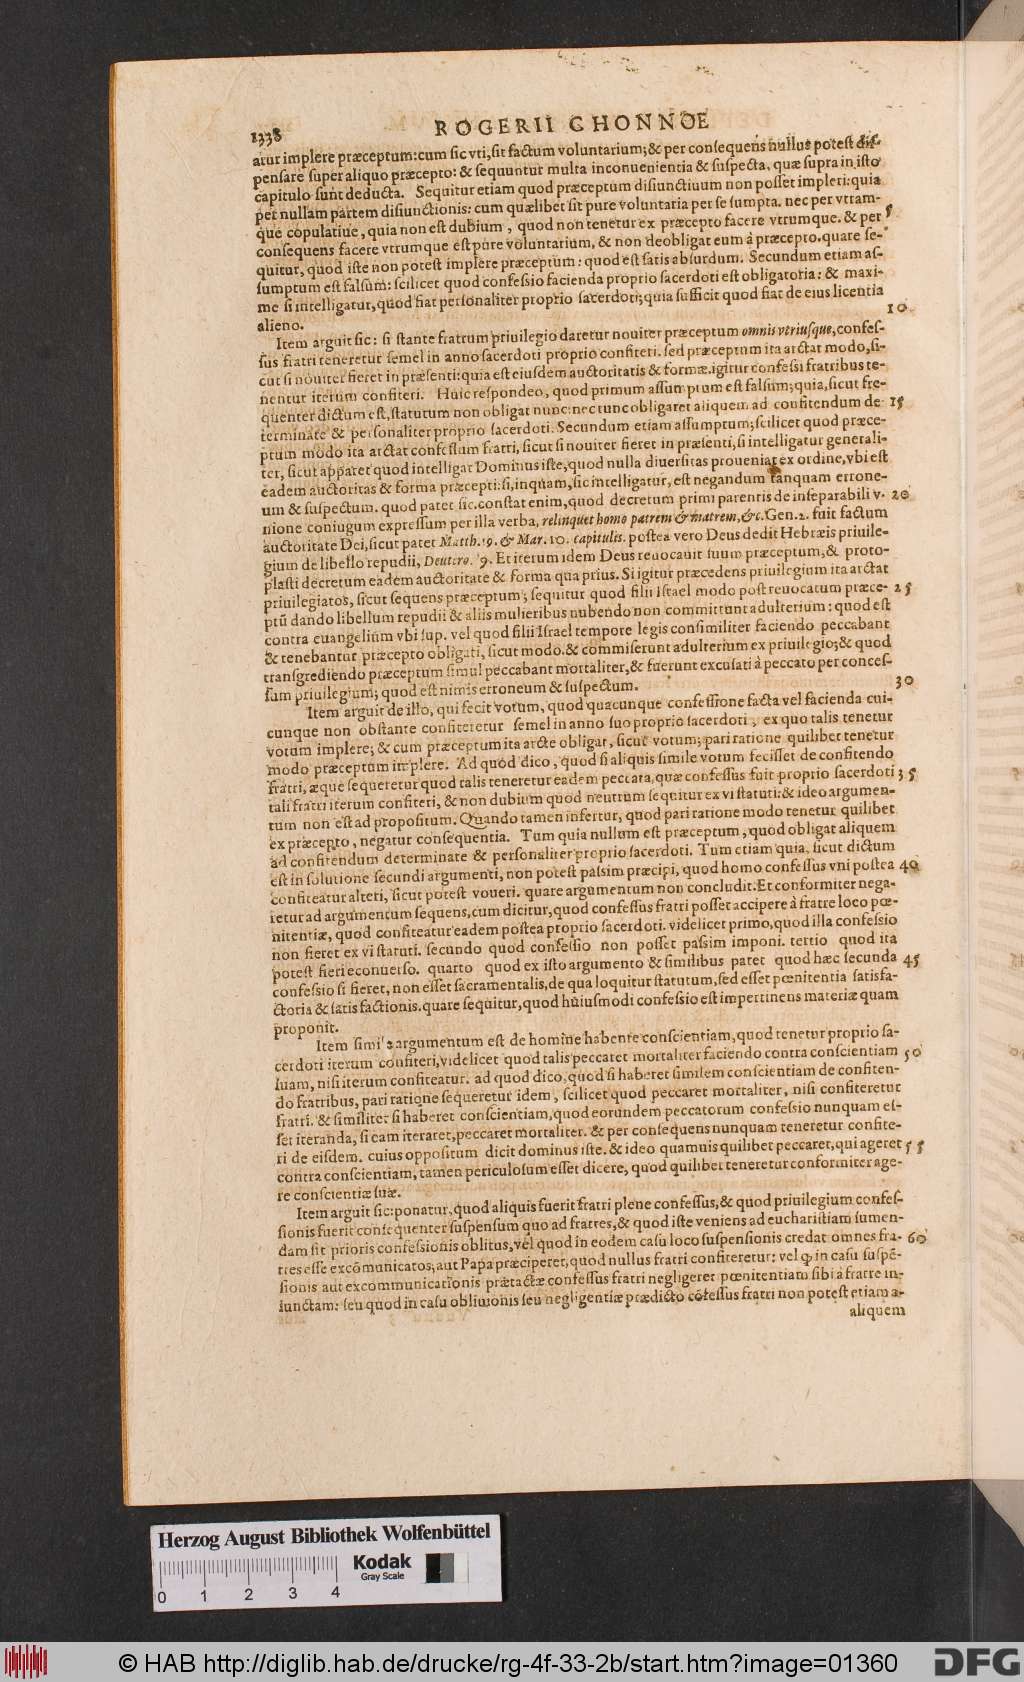 1338 ROGERII CHONNOE
atur implere præceptum: cum sic vti, sit factum voluntarium; & per consequens nullus potest dis-
pensare super aliquo præcepto: & sequuntur multa inconuenientia & suspecta, quæ supra in isto
capitulo sunt deducta. Sequitur etiam quod præceptum disiunctiuum non posset impleri: quia
per nullam partem disiunctionis: cum quælibet sit pure voluntaria per se sumpta. nec per vtram-
que copulatiue, quia non est dubium, quod non tenetur ex præcepto facere vtrumque. & per 5
consequens facere vtrumque est pure voluntarium, & non deobligat eum à præcepto. quare se-
quitur, quod iste non potest implere præceptum: quod est satis absurdum. Secundum etiam as-
sumptum est falsum: scilicet quod confessio facienda proprio sacerdoti est obligatoria: & maxi-
me si intelligatur, quod fiat personaliter proprio sacerdoti; quia sufficit quod fiat de eius licentia
alieno. 10
Item arguit sic: si stante fratrum priuilegio daretur nouiter præceptum omnis vtriusque, confes-
sus fratri teneretur semel in anno sacerdoti proprio confiteri. sed præceptum ita arctat modo, si-
cut si nouiter fieret in præsenti: quia est eiusdem auctoritatis & formæ. igitur confessi fratribus te-
nentur iterum confiteri. Huic respondeo, quod primum assumptum est falsum; quia, sicut fre-
quenter dictum est, statutum non obligat nunc: nec tunc obligaret aliquem ad confitendum de- 15
terminate & personaliter proprio sacerdoti. Secundum etiam assumptum; scilicet quod præce-
ptum modo ita arctat confessum fratri, sicut si nouiter fieret in præsenti, si intelligatur generali-
ter, sicut apparet quod intelligat Dominus iste, quod nulla diuersitas proueniat ex ordine, vbi est
eadem auctoritas & forma præcepti: si, inquam, sic intelligatur, est negandum tanquam errone-
um & suspectum. quod patet sic. constat enim, quod decretum primi parentis de inseparabili v- 20
nione coniugum expressum per illa verba, relinquet homo patrem & matrem, &c. Gen. 2. fuit factum
auctoritate Dei, sicut patet Matth. 19. & Mar. 10. capitulis. postea vero Deus dedit Hebræis priuile-
gium de libello repudii, Deutero. 9. Et iterum idem Deus reuocauit suum præceptum, & proto-
plasti decretum eadem auctoritate & forma qua prius. Si igitur præcedens priuilegium ita arctat
priuilegiatos, sicut sequens præceptum; sequitur quod filii Israel modo post reuocatum præce- 25
ptū dando libellum repudii & aliis mulieribus nubendo non committunt adulterium: quod est
contra euangelium vbi sup. vel quod filii Israel tempore legis consimiliter faciendo peccabant
& tenebantur præcepto obligati, sicut modo. & commiserunt adulterium ex priuilegio; & quod
transgrediendo præceptum simul peccabant mortaliter, & fuerunt excusati à peccato per conces-
sum priuilegium; quod est nimis erroneum & suspectum. 30
Item arguit de illo, qui fecit votum, quod quacunque confessione facta vel facienda cui-
cunque non obstante confiteretur semel in anno suo proprio sacerdoti, ex quo talis tenetur
votum implere; & cum præceptum ita arcte obligat, sicut votum; pari ratione quilibet tenetur
modo præceptum implere. Ad quod dico, quod si aliquis simile votum fecisset de confitendo
fratri, æque sequeretur quod talis teneretur eadem peccata, quæ confessus fuit proprio sacerdoti 35
tali fratri iterum confiteri, & non dubium quod neutrum sequitur ex vi statuti: & ideo argumen-
tum non est ad propositum. Quando tamen infertur, quod pari ratione modo tenetur quilibet
ex præcepto, negatur consequentia. Tum quia nullum est præceptum, quod obligat aliquem
ad confitendum determinate & personaliter proprio sacerdoti. Tum etiam quia, sicut dictum
est in solutione secundi argumenti, non potest passim præcipi, quod homo confessus vni postea 40
confiteatur alteri, sicut potest voueri. quare argumentum non concludit. Et conformiter nega-
retur ad argumentum sequens, cum dicitur, quod confessus fratri posset accipere à fratre loco pœ-
nitentiæ, quod confiteatur eadem postea proprio sacerdoti. videlicet primo, quod illa confessio
non fieret ex vi statuti. secundo quod confessio non posset passim imponi. tertio quod ita
potest fieri econuerso. quarto quod ex isto argumento & similibus patet quod hæc secunda 45
confessio si fieret, non esset sacramentalis, de qua loquitur statutum, sed esset pœnitentia satisfa-
ctoria & satisfactionis. quare sequitur, quod huiusmodi confessio est impertinens materiæ quam
proponit.
Item simile argumentum est de homine habente conscientiam, quod tenetur proprio sa-
cerdoti iterum confiteri, videlicet quod talis peccaret mortaliter faciendo contra conscientiam 50
suam, nisi iterum confiteatur. ad quod dico, quod si haberet similem conscientiam de confiten-
do fratribus, pari ratione sequeretur idem, scilicet quod peccaret mortaliter, nisi confiteretur
fratri. & similiter si haberet conscientiam, quod eorundem peccatorum confessio nunquam es-
set iteranda, si eam iteraret, peccaret mortaliter. & per consequens nunquam teneretur confite-
ri de eisdem. cuius oppositum dicit dominus iste. & ideo quamuis quilibet peccaret, qui ageret 55
contra conscientiam, tamen periculosum esset dicere, quod quilibet teneretur conformiter age-
re conscientiæ suæ.
Item arguit sic: ponatur, quod aliquis fuerit fratri plene confessus, & quod priuilegium confes-
sionis fuerit consequenter suspensum quo ad fratres, & quod iste veniens ad eucharistiam sumen-
dam sit prioris confessionis oblitus, vel quod in eodem casu loco suspensionis credat omnes fra- 60
tres esse excōmunicatos, aut Papa præciperet, quod nullus fratri confiteretur: vel ꝙ in casu suspē-
sionis aut excommunicationis prætactæ confessus fratri negligeret pœnitentiam sibi à fratre in-
iunctam: seu quod in casu obliuionis seu negligentiæ prædicto cōfessus fratri non potest etiam a-
aliquem
Herzog August Bibliothek Wolfenbüttel
Kodak
Gray Scale
0 1 2 3 4
© HAB http://diglib.hab.de/drucke/rg-4f-33-2b/start.htm?image=01360
DFG